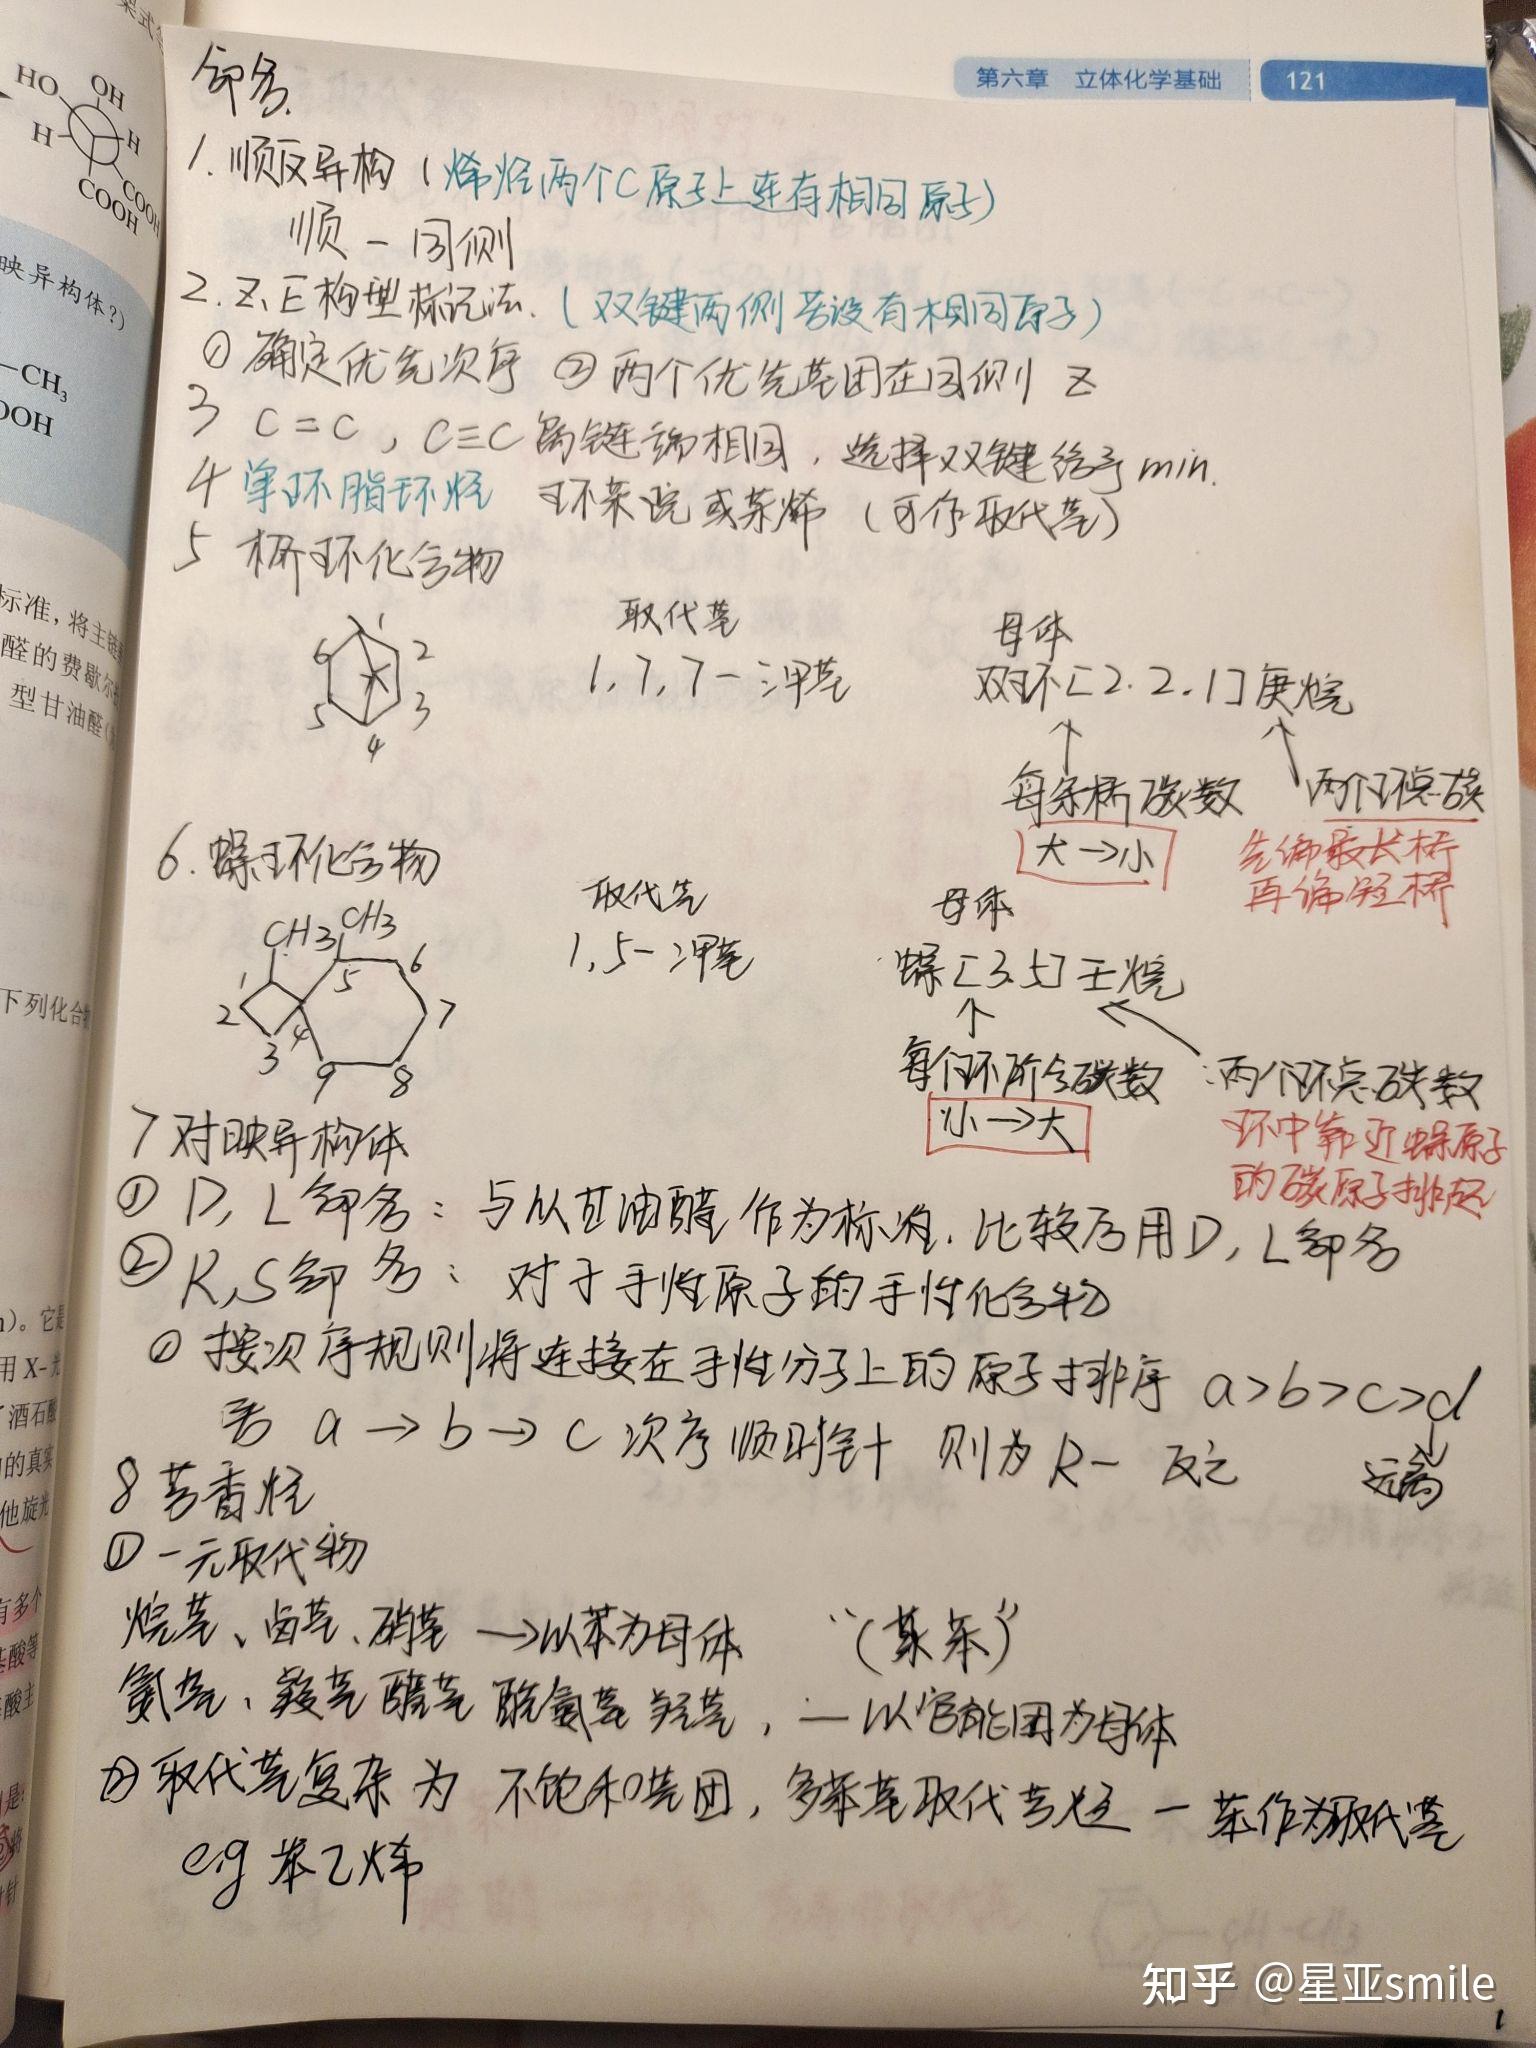 第六章 立体化学基础 121
HO OH
H H
COOH COOH
映异构体？）
—CH₃
OOH
标准，将主链
醛的费歇尔
型甘油醛（
下列化合物
）。它是
用 X-光
酒石酸
的真实
他旋光
有多个
基酸等
酸主
命名.
1. 顺反异构（烯烃两个C原子上连有相同原子）
顺 — 同侧
2. Z、E构型标记法.（双键两侧若没有相同原子）
① 确定优先次序 ② 两个优先基团在同侧 Z
3 C=C，C≡C 离链端相同，选择双键给予min.
4 单环脂环烃 环某烷或某烯（可作取代基）
5 桥环化合物
取代基 母体
1 2 3 4 5 6
1,7,7-三甲基 双环[2.2.1]庚烷
每条桥碳数 两个环总碳
大→小 先编最长桥
再编短桥
6. 螺环化合物
取代基 母体
CH3 CH3
1 2 3 4 5 6 7 8 9
1,5-二甲基 螺[3.5]壬烷
每个环所含碳数 两个环总碳数
小→大 环中靠近螺原子
的碳原子排起
7 对映异构体
① D, L命名：与以甘油醛作为标准.比较后用D, L命名
② R,S命名：对于手性原子的手性化合物
① 按次序规则将连接在手性分子上的原子排序 a>b>c>d
若 a→b→c 次序顺时针 则为R- 反之 远离
8 芳香烃
① 一元取代物
烷基、卤基、硝基 →以苯为母体 “（某苯）”
氨基、羧基 醛基 酰氨基 羟基，—以官能团为母体
② 取代基复杂为 不饱和基团，多苯基取代芳烃 — 苯作为取代基
e.g 苯乙烯
知乎 @星亚smile
1